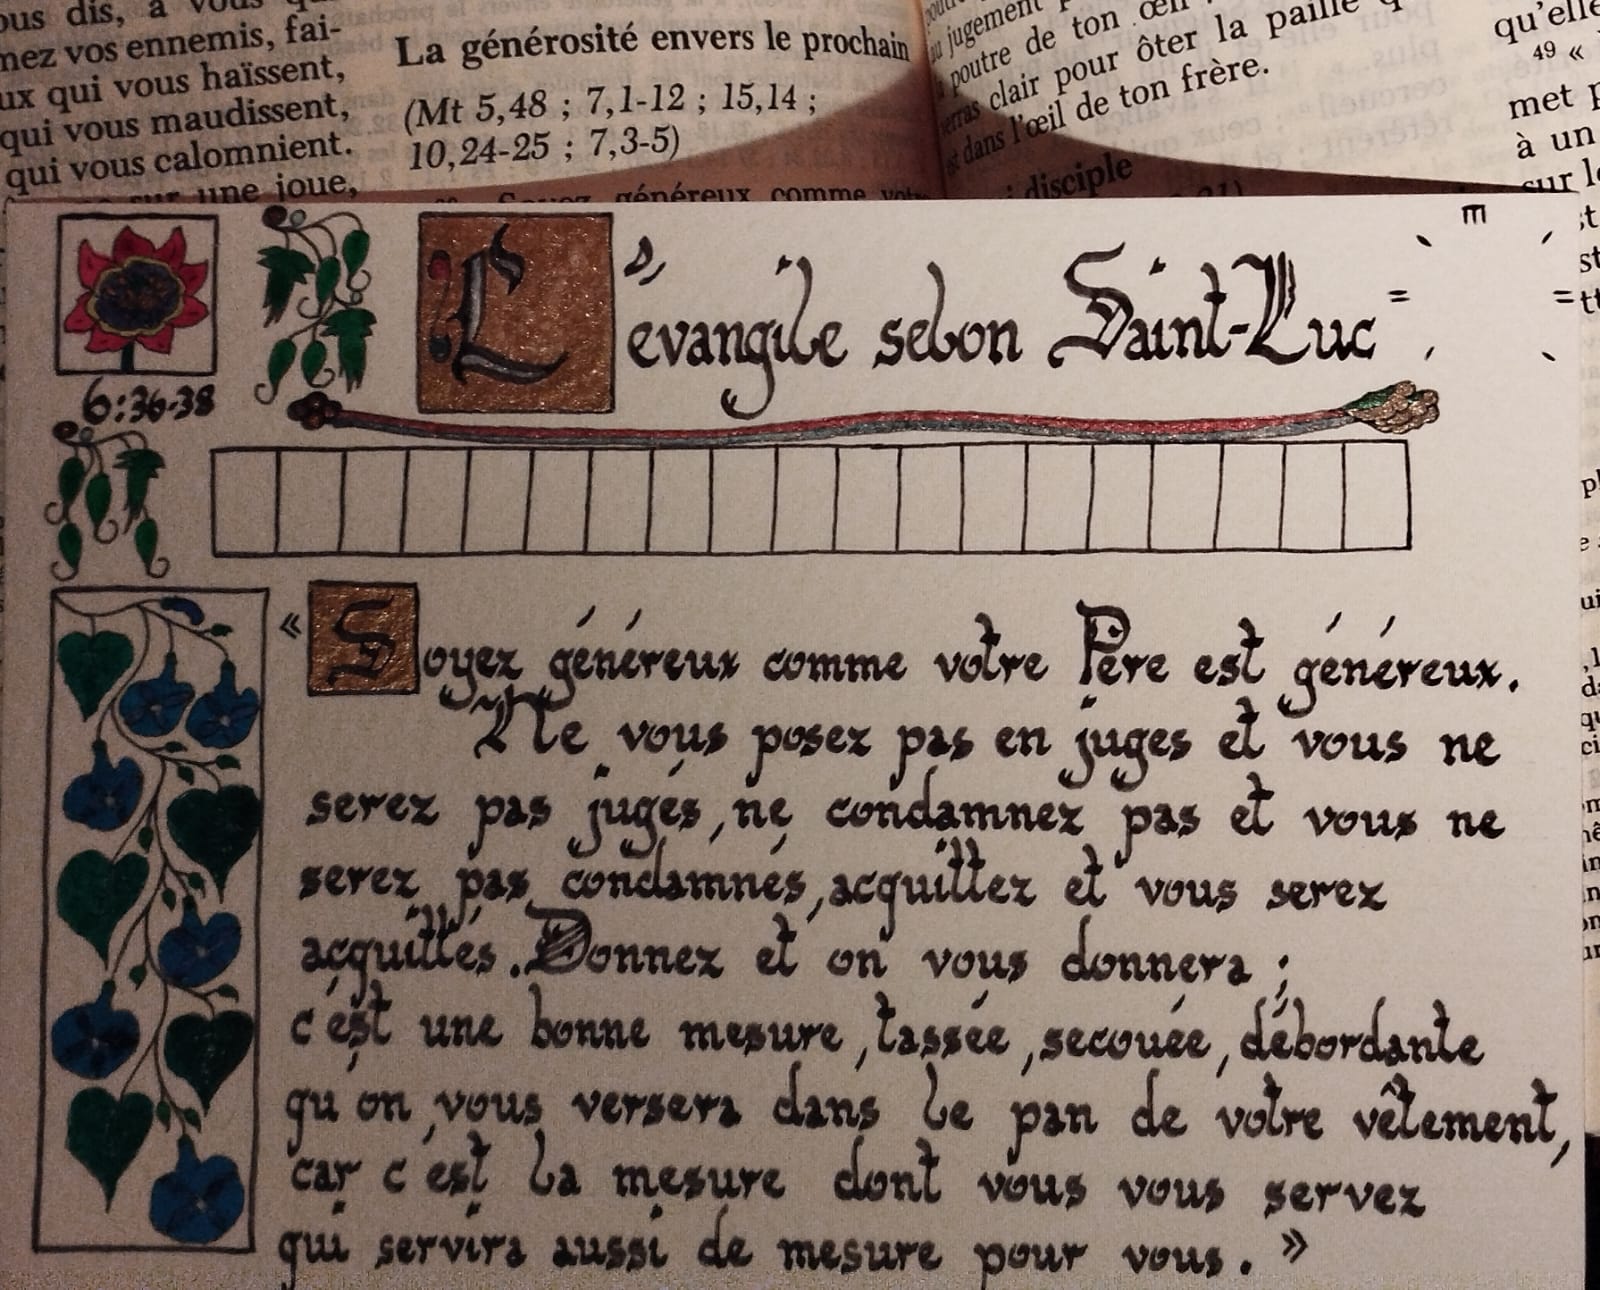 ous dis, à vous qu
mez vos ennemis, fai-
ux qui vous haïssent,
qui vous maudissent,
qui vous calomnient.
sur une joue,
La générosité envers le prochain
(Mt 5,48 ; 7,1-12 ; 15,14 ;
10,24-25 ; 7,3-5)
Soyez généreux comme votre
jugement
poutre de ton œil
clair pour ôter la paille q
est dans l'œil de ton frère.
disciple
qu'elle
49 «
met p
à un
sur le
L'évangile selon Saint-Luc
6:36-38
« Soyez généreux comme votre Père est généreux.
Ne vous posez pas en juges et vous ne
serez pas jugés, ne condamnez pas et vous ne
serez pas condamnés, acquittez et vous serez
acquittés. Donnez et on vous donnera ;
c'est une bonne mesure, tassée, secouée, débordante
qu'on vous versera dans le pan de votre vêtement,
car c'est la mesure dont vous vous servez
qui servira aussi de mesure pour vous. »